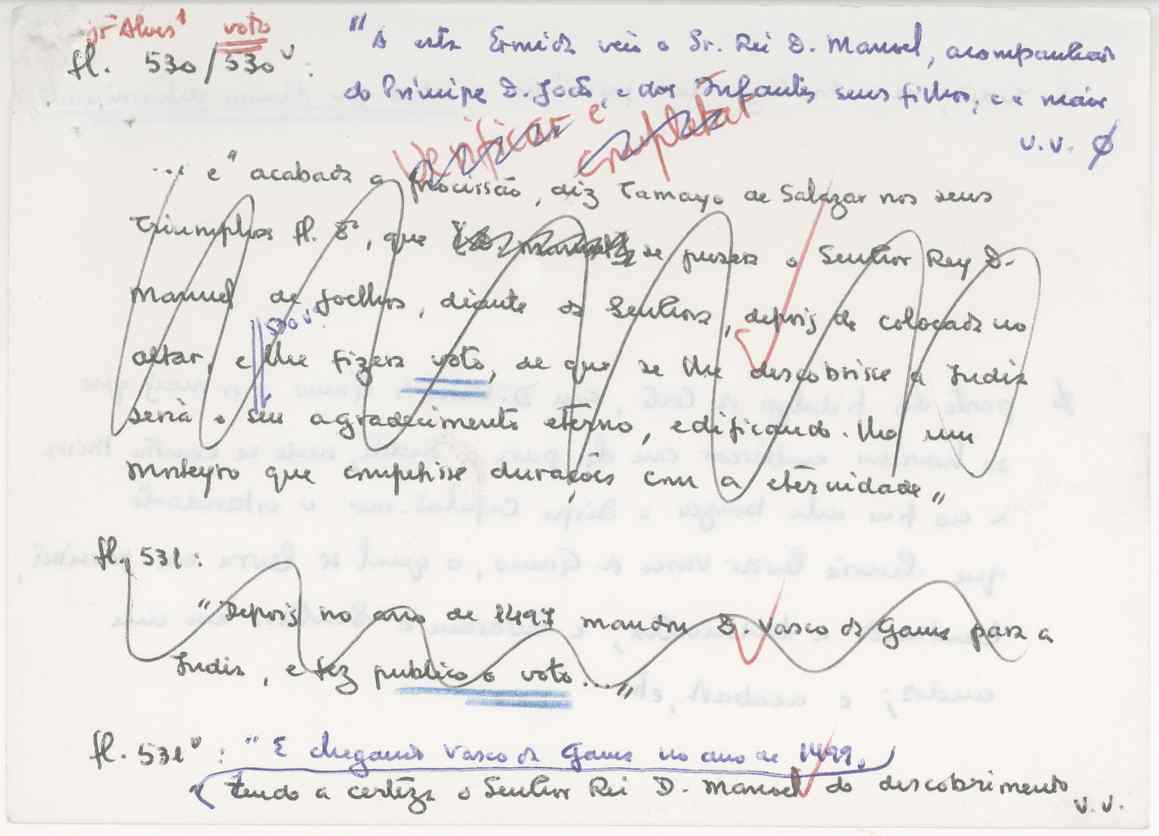 jª Alves¹ voto
fl. 530/530 v:
"A esta Ermida veio o Sr. Rei D. Manoel, acompanhado
do Principe D. João, e dos Infantes seus filhos, e a maior
v.v. ∅
Verificar e completar
... e "acabada a procissão, diz Tamayo de Salazar nos seus
Triumphos fl. 8, que se puzera o Senhor Rey D.
Manuel de joelhos, diante da Senhora, depois de colocada no
530 v:
altar, e lhe fizera voto, de que se lhe descobrisse a India
seria o seu agradecimento eterno, edificando-lho um
mosteyro que competisse durações com a eternidade"
fl. 531:
"Depois no ano de 1497 mandou D. Vasco da Gama para a
India, e fez publico o voto..."
fl. 531v: "E chegando Vasco da Gama no ano de 1499,
tendo a certeza o Senhor Rei D. Manoel do descobrimento
v.v.